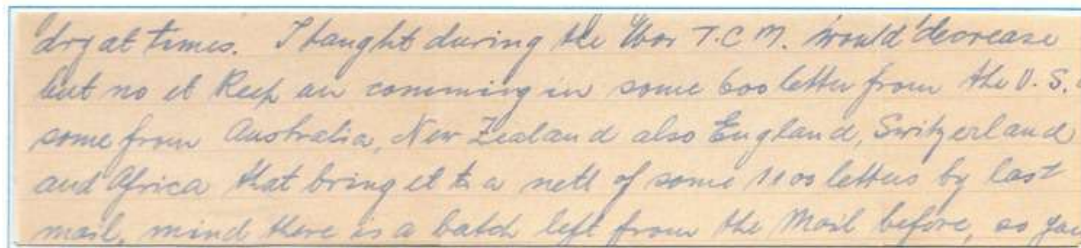 dry at times. I taught during the War T.C.M. would decrease
but no it Keep an comming in some 600 letter from the U.S.
some from Australia, New Zealand also England, Switzerland
and Africa that bring it to a nett of some 1100 letters by last
mail, mind there is a batch left from the Mail before, so you